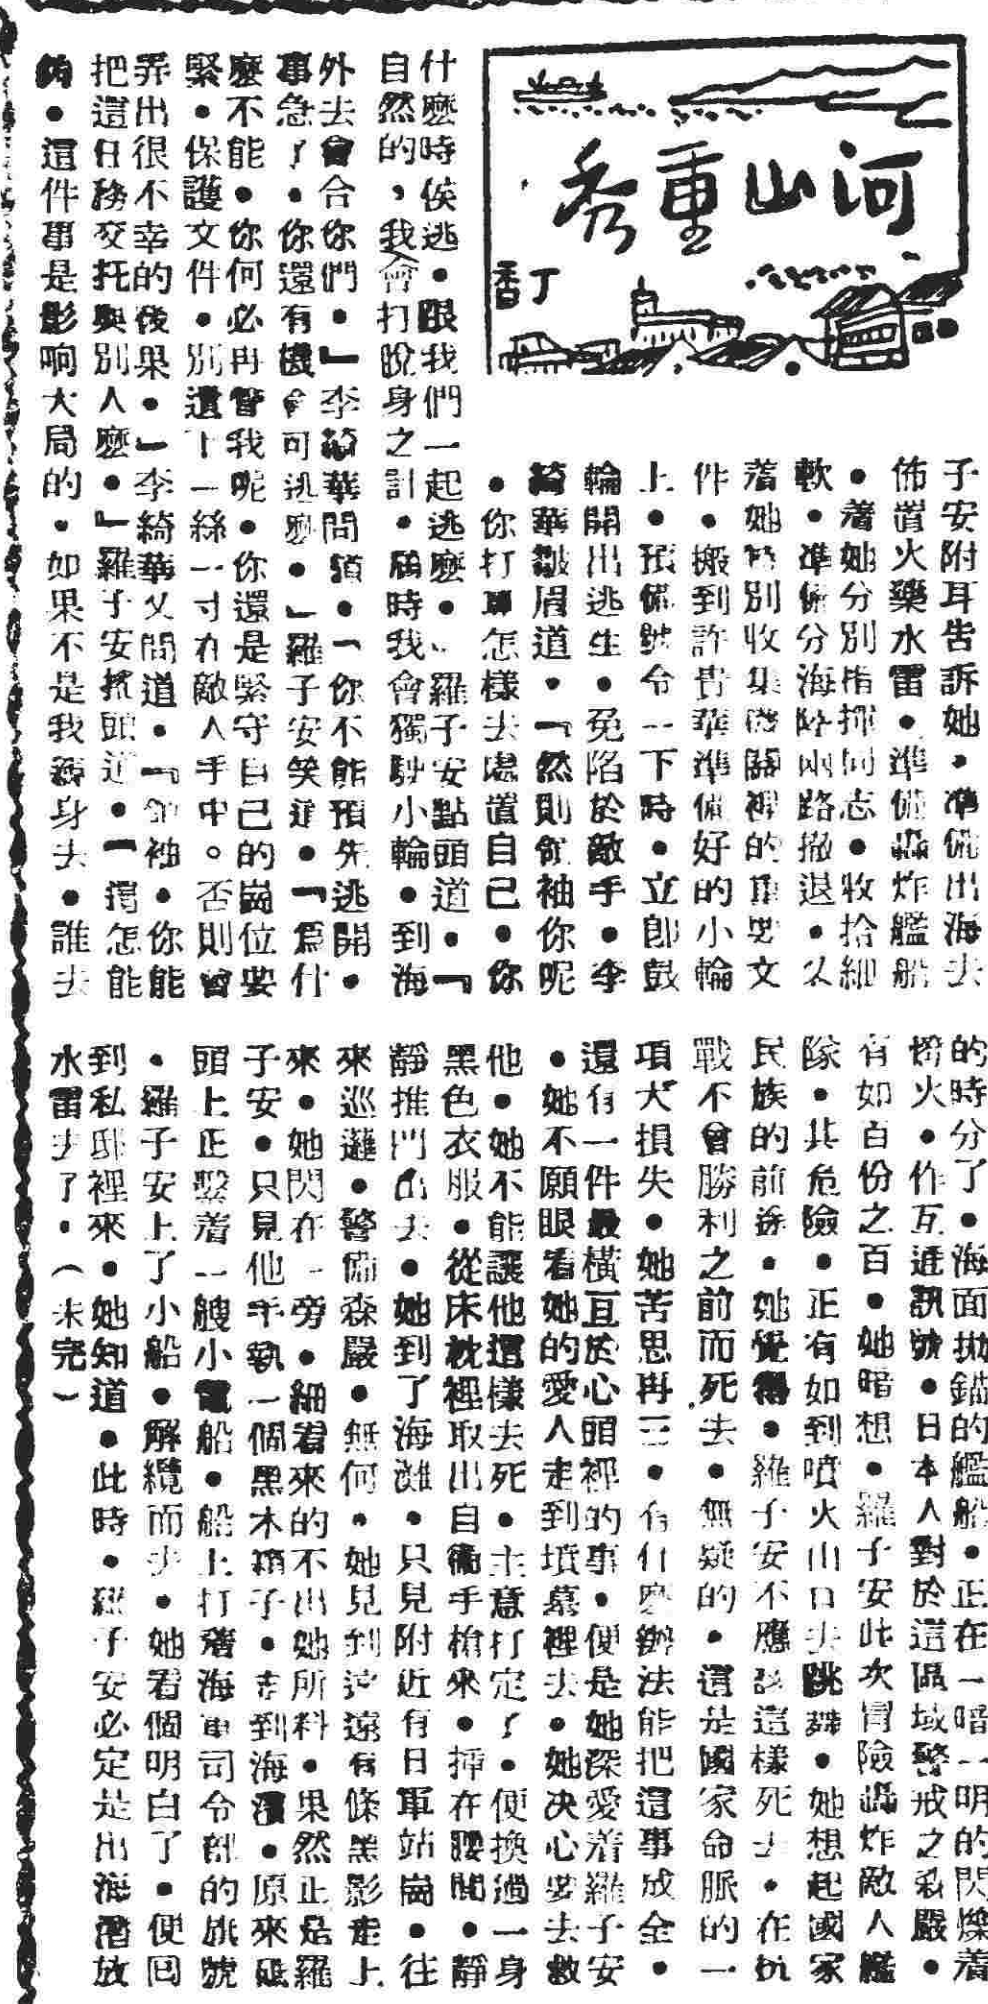 河山重秀
丁香
子安附耳告訴她・準備出海去
佈置火藥水雷・準備轟炸艦船
・着她分別指揮同志・收拾細
軟・準備分海陸兩路撤退・又
着她特別收集機關裡的重要文
件・搬到許貴華準備好的小輪
上・預備號令一下時・立即鼓
輪開出逃生・免陷於敵手・李
綺華皺眉道・『然則領袖你呢
・你打算怎樣去處置自己・你
什麼時侯逃・跟我們一起逃麼・』羅子安點頭道・『
自然的，我會打脫身之計・屆時我會獨駛小輪・到海
外去會合你們・』李綺華問道・『你不能預先逃開・
事急了・你還有機會可逃麼・』羅子安笑道・『為什
麼不能・你何必再管我呢・你還是緊守自己的崗位要
緊・保護文件・別遺下一絲一寸在敵人手中。否則會
弄出很不幸的後果・』李綺華又問道・『領袖・你能
把這日務交托與別人麼・』羅子安搖頭道・『 怎能
夠・這件事是影响大局的・如果不是我親身去・誰去
的時分了・海面拋錨的艦船・正在一暗一明的閃爍着
燈火・作互通訊號・日本人對於這區域警戒之森嚴・
有如百份之百・她暗想・羅子安此次冒險轟炸敵人艦
隊・其危險・正有如到噴火山口去跳舞・她想起國家
民族的前途・她覺得・羅子安不應該這樣死去・在抗
戰不會勝利之前而死去・無疑的・這是國家命脈的一
項大損失・她苦思再三・有什麼辦法能把這事成全・
還有一件最橫亘於心頭裡的事・便是她深愛着羅子安
・她不願眼看她的愛人走到墳墓裡去・她决心要去救
他・她不能讓他這樣去死・主意打定了・便換過一身
黑色衣服・從床枕裡取出自衞手槍來・挿在腰間・靜
靜推門出去・她到了海灘・只見附近有日軍站崗・往
來巡邏・警備森嚴・無何・她見到遠遠有條黑影走上
來・她閃在一旁・細看來的不出她所料・果然正是羅
子安・只見他手執一個黑木箱子・走到海濱・原來碼
頭上正繫着一艘小電船・船上打着海軍司令部的旗號
・羅子安上了小船・解纜而去・她看個明白了・便回
到私邸裡來・她知道・此時・羅子安必定是出海潛放
水雷去了・（未完）